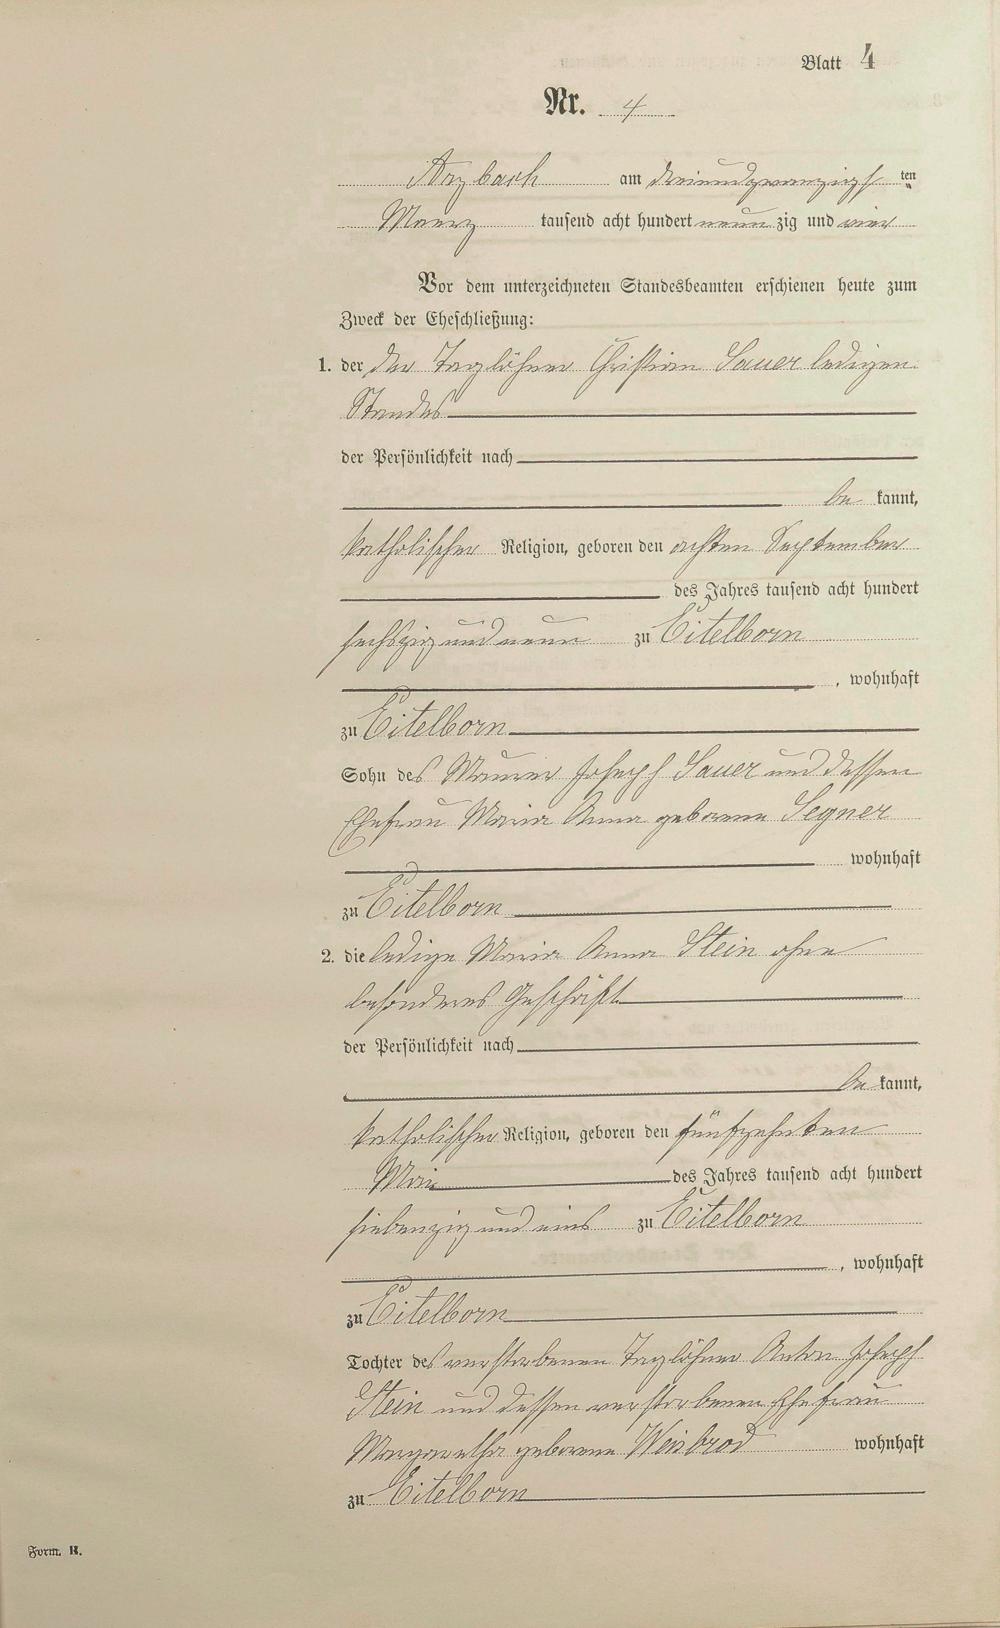 Blatt 4
Nr. 4
Arzbach am dreiundzwanzigsten
Maerz tausend acht hundert neunzig und vier
Vor dem unterzeichneten Standesbeamten erschienen heute zum
Zweck der Eheschließung:
1. der der Taglöhner Christian Sauer ledigen
Standes
der Persönlichkeit nach
be kannt,
katholischer Religion, geboren den achten September
des Jahres tausend acht hundert
sechszig und neun zu Eitelborn
, wohnhaft
zu Eitelborn
Sohn des Maurer Joseph Sauer und dessen
Ehefrau Maria Anna geborene Segner
wohnhaft
zu Eitelborn
2. die ledige Maria Anna Stein ohne
besonderes Geschäft
der Persönlichkeit nach
be kannt,
katholischer Religion, geboren den fünfzehnten
Mai des Jahres tausend acht hundert
siebenzig und eins zu Eitelborn
, wohnhaft
zu Eitelborn
Tochter des verstorbenen Taglöhner Anton Joseph
Stein und dessen verstorbenen Ehefrau
Margaretha geborene Weisbrod wohnhaft
zu Eitelborn
Form. B.